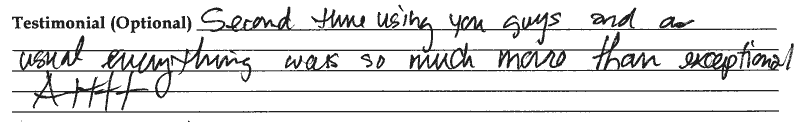 Testimonial (Optional) Second time using you guys and as
usual everything was so much more than exceptional
A++++